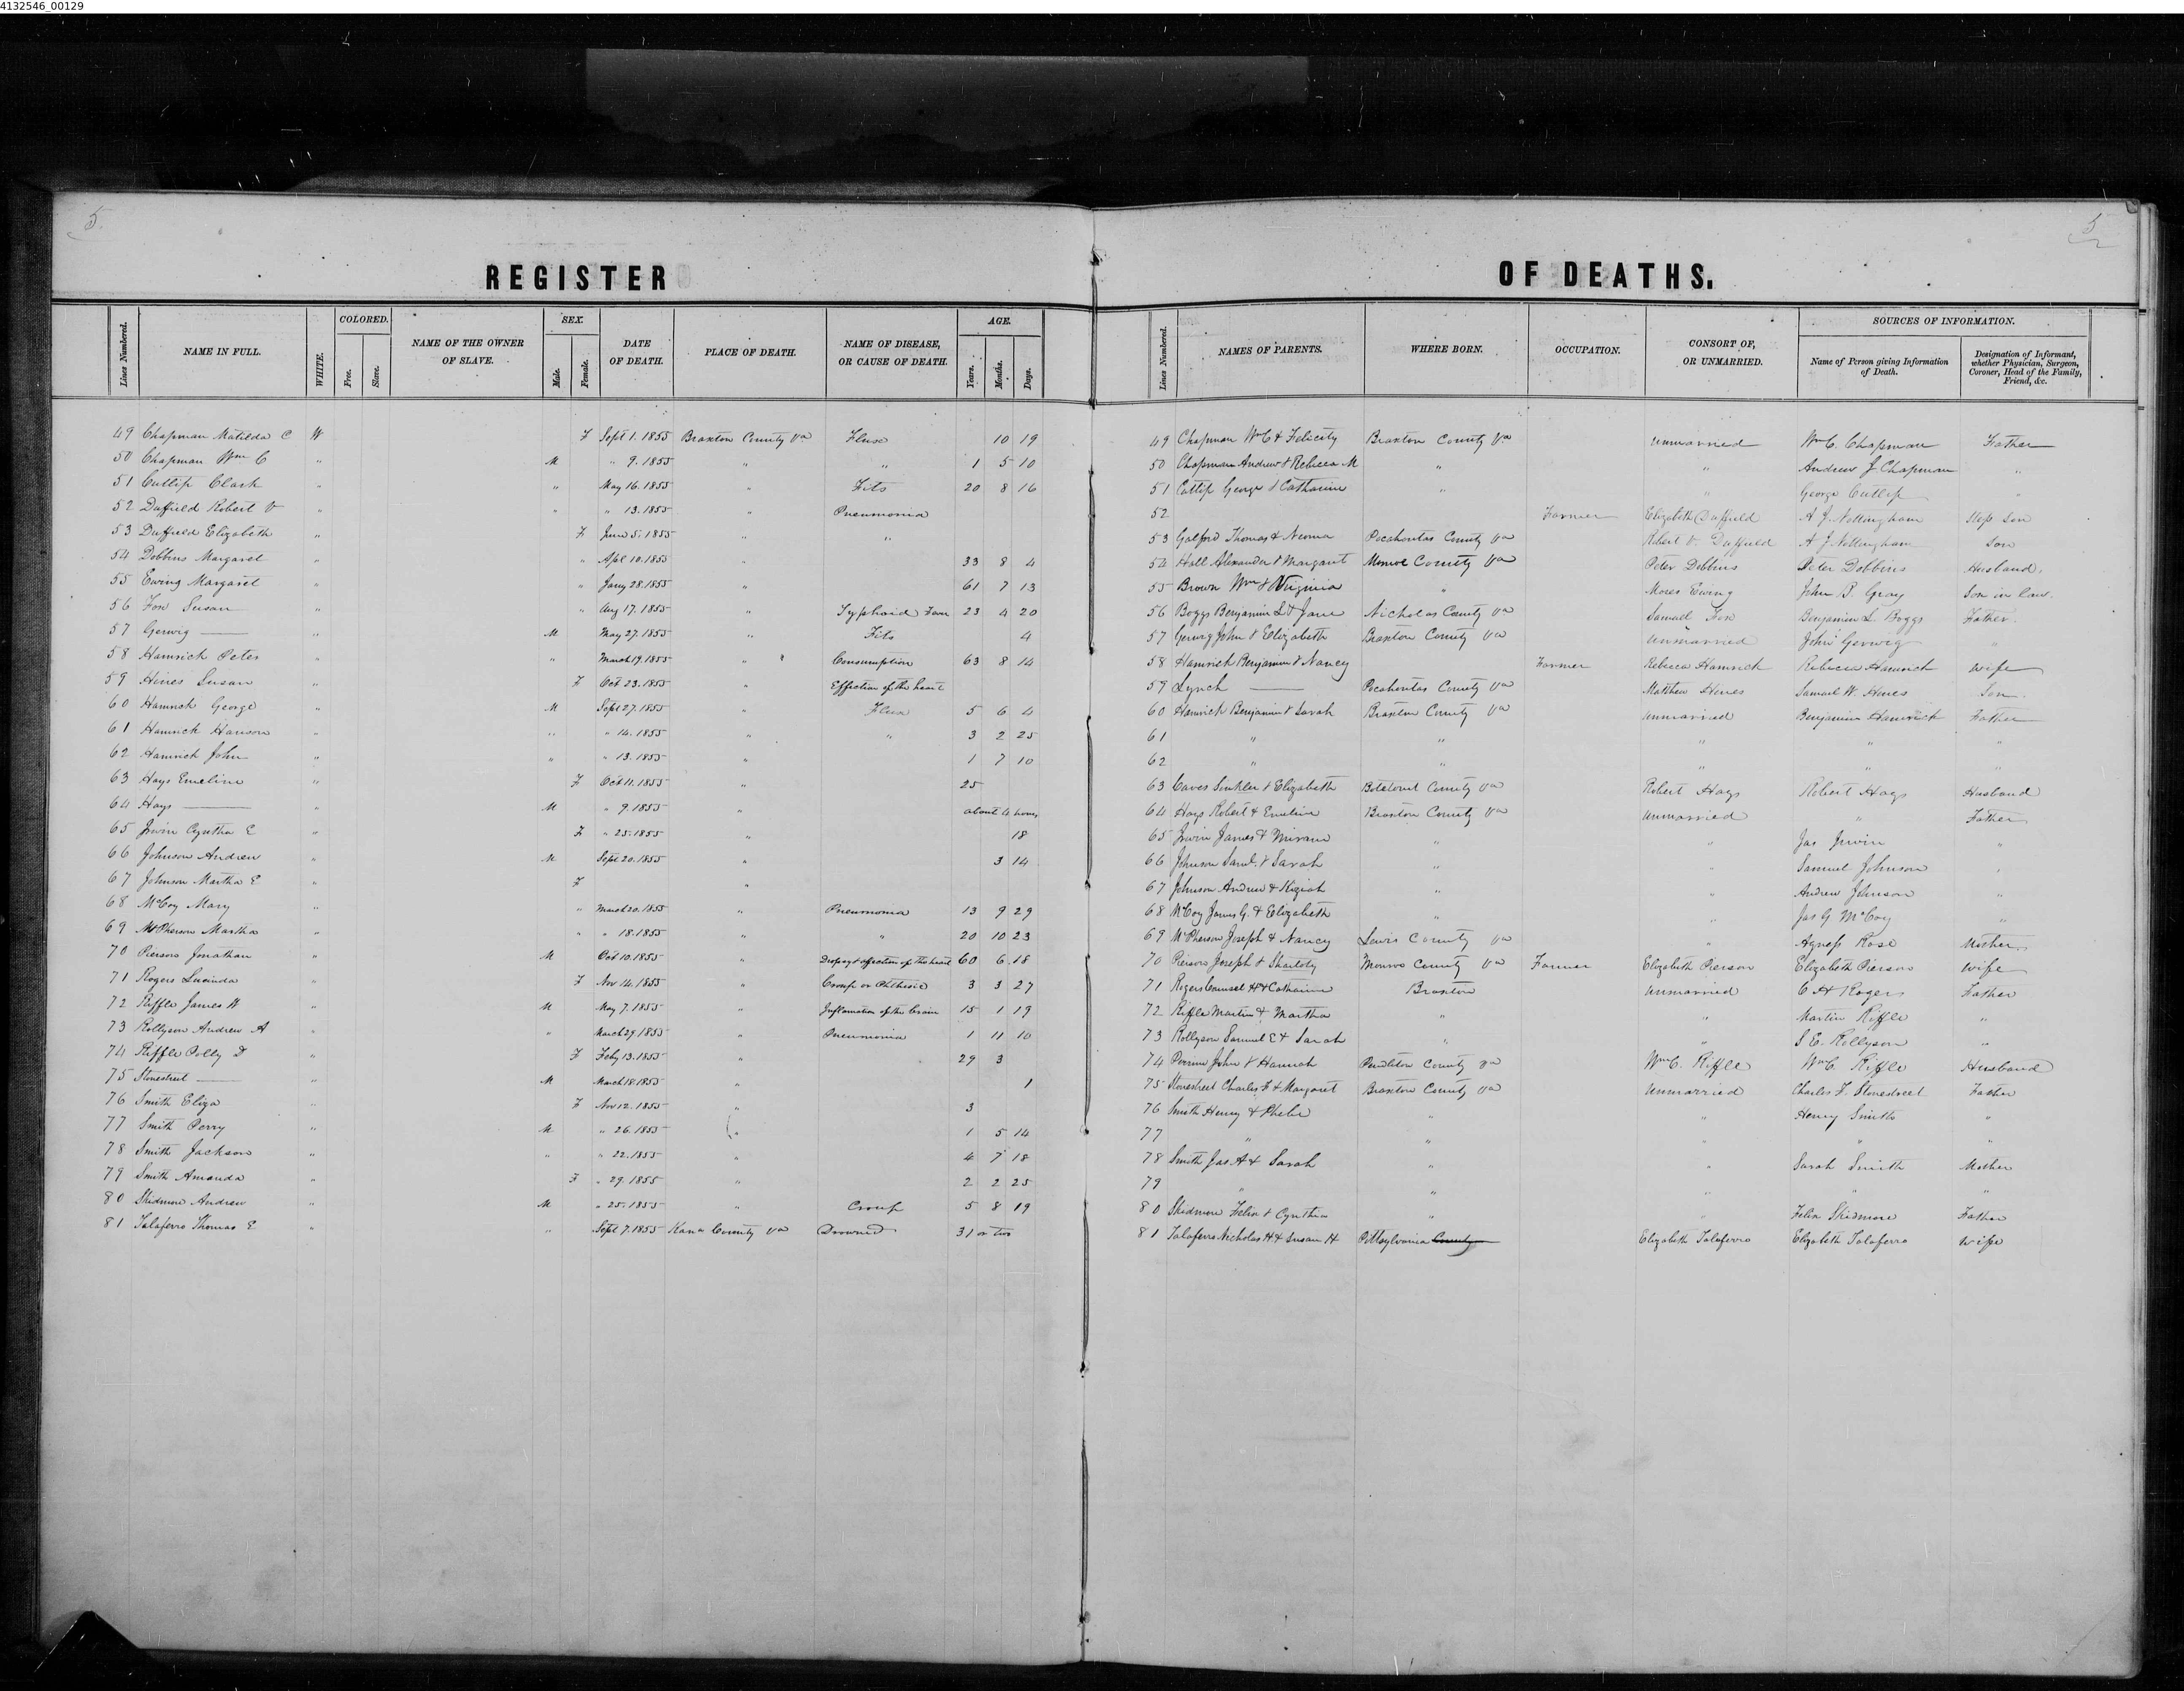 4132546_00129
5
5
REGISTER OF DEATHS.
Lines Numbered. NAME IN FULL. WHITE. COLORED. Free. Slave. NAME OF THE OWNER OF SLAVE. SEX. Male. Female. DATE OF DEATH. PLACE OF DEATH. NAME OF DISEASE, OR CAUSE OF DEATH. AGE. Years. Months. Days. Lines Numbered. NAMES OF PARENTS. WHERE BORN. OCCUPATION. CONSORT OF, OR UNMARRIED. SOURCES OF INFORMATION. Name of Person giving Information of Death. Designation of Informant, whether Physician, Surgeon, Coroner, Head of the Family, Friend, &c.
49 Chapman Matilda C W F Sept 1. 1855 Braxton County Va Flux 10 19 49 Chapman Wm C & Felicity Braxton County Va unmarried Wm C. Chapman Father
50 Chapman Wm C " M " 9. 1855 " " 1 5 10 50 Chapman Andrew & Rebecca M " " Andrew J Chapman "
51 Cutlip Clark " " May 16. 1855 " Fits 20 8 16 51 Cutlip George & Catharine " " George Cutlip "
52 Duffield Robert V " " " 13. 1855 " Pneumonia 52 Farmer Elizabeth Duffield A J. Nottingham Step Son
53 Duffield Elizabeth " F June 5. 1855 " " 53 Galford Thomas & Neoma Pocahontas County Va Robert V. Duffield A J Nottingham Son
54 Dobbins Margaret " " Apl 10. 1855 " 33 8 4 54 Hall Alexander & Margaret Monroe County Va Peter Dobbins Peter Dobbins Husband.
55 Ewing Margaret " " Jany 28. 1855 " 61 7 13 55 Brown Wm & Virginia " Moses Ewing John P. Gray Son in law.
56 Fox Susan " " Aug 17. 1855 " Typhoid Fever 23 4 20 56 Boggs Benjamin L & Jane Nicholas County Va Samuel Fox Benjamin L. Boggs Father.
57 Gerwig — " M May 27. 1855 " Fits 4 57 Gerwig John & Elizabeth Braxton County Va Unmarried John Gerwig "
58 Hamrick Peter " " March 19. 1855 " Consumption 63 8 14 58 Hamrick Benjamin & Nancy Farmer Rebecca Hamrick Rebecca Hamrick wife
59 Hines Susan " F Oct 23. 1855 " Effection of the heart 59 Lynch — Pocahontas County Va Matthew Hines Samuel W. Hines Son
60 Hamrick George " M Sept 27. 1855 " Flux 5 6 4 60 Hamrick Benjamin & Sarah Braxton County Va unmarried Benjamin Hamrick Father
61 Hamrick Hanson " " " 14. 1855 " " 3 2 25 61 " " " " "
62 Hamrick John " " " 13. 1855 " 1 7 10 62 " " " " "
63 Hays Emeline " F Oct 11. 1855 " 25 63 Caves Sinkler & Elizabeth Botetourt County Va Robert Hays Robert Hays Husband
64 Hays — " M " 9. 1855 " about 4 hours 64 Hays Robert & Emeline Braxton County Va unmarried " Father
65 Irwin Cyntha E " F " 25. 1855 " 18 65 Irwin James & " " Jas Irwin "
66 Johnson Andrew " M Sept 20. 1855 " 3 14 66 Johnson Saml. & Sarah " Samuel Johnson "
67 Johnson Martha E " F " 67 Johnson Andrew & Kiziah " " Andrew Johnson "
68 McCoy Mary " " March 20. 1855 " Pneumonia 13 9 29 68 McCoy James G. & Elizabeth " " Jas G. McCoy "
69 McPherson Martha " " " 18. 1855 " " 20 10 23 69 McPherson Joseph & Nancy Lewis County Va " Agness Rose Mother
70 Pierson Jonathan " M Oct 10. 1855 " Dropsy & effection of the heart 60 6 18 70 Pierson Joseph & Monroe County Va Farmer Elizabeth Pierson Elizabeth Pierson wife
71 Rogers Lucinda " F Nov 14. 1855 " Croup or Phthisic 3 3 27 71 Rogers Counsel H & Catharine Braxton Unmarried C H Rogers Father
72 Riffle James W " M May 7. 1855 " Inflamation of the brain 15 1 19 72 Riffle Martin & Martha " " Martin Riffle "
73 Rollyson Andrew A " " March 29. 1855 " Pneumonia 1 11 10 73 Rollyson Samuel E & Sarah " " S E. Rollyson "
74 Riffle Polly D " F Feby 13. 1855 " 29 3 74 Perrine John & Hannah Pendleton County Va Wm C. Riffle Wm C. Riffle Husband
75 Stonestreet — " M March 18. 1855 " 1 75 Stonestreet Charles F & Margaret Braxton County Va unmarried Charles F. Stonestreet Father
76 Smith Eliza " F Nov 12. 1855 " 3 76 Smith Henry & Phebe " " Henry Smith "
77 Smith Perry " M " 26. 1855 " 1 5 14 77 " " " " "
78 Smith Jackson " " " 22. 1855 " 4 7 18 78 Smith Jas A & Sarah " " Sarah Smith Mother
79 Smith Amanda " F " 29. 1855 " 2 2 25 79 " " " " "
80 Skidmore Andrew " M " 25. 1855 " Croup 5 8 19 80 Skidmore Felix & Cynthia " " Felix Skidmore Father
81 Talaferro Thomas E " " Sept 7. 1855 Kana County Va Drowned 31 or two 81 Talaferro Nicholas H & Susan H Pittsylvania County Elizabeth Talaferro Elizabeth Talaferro wife